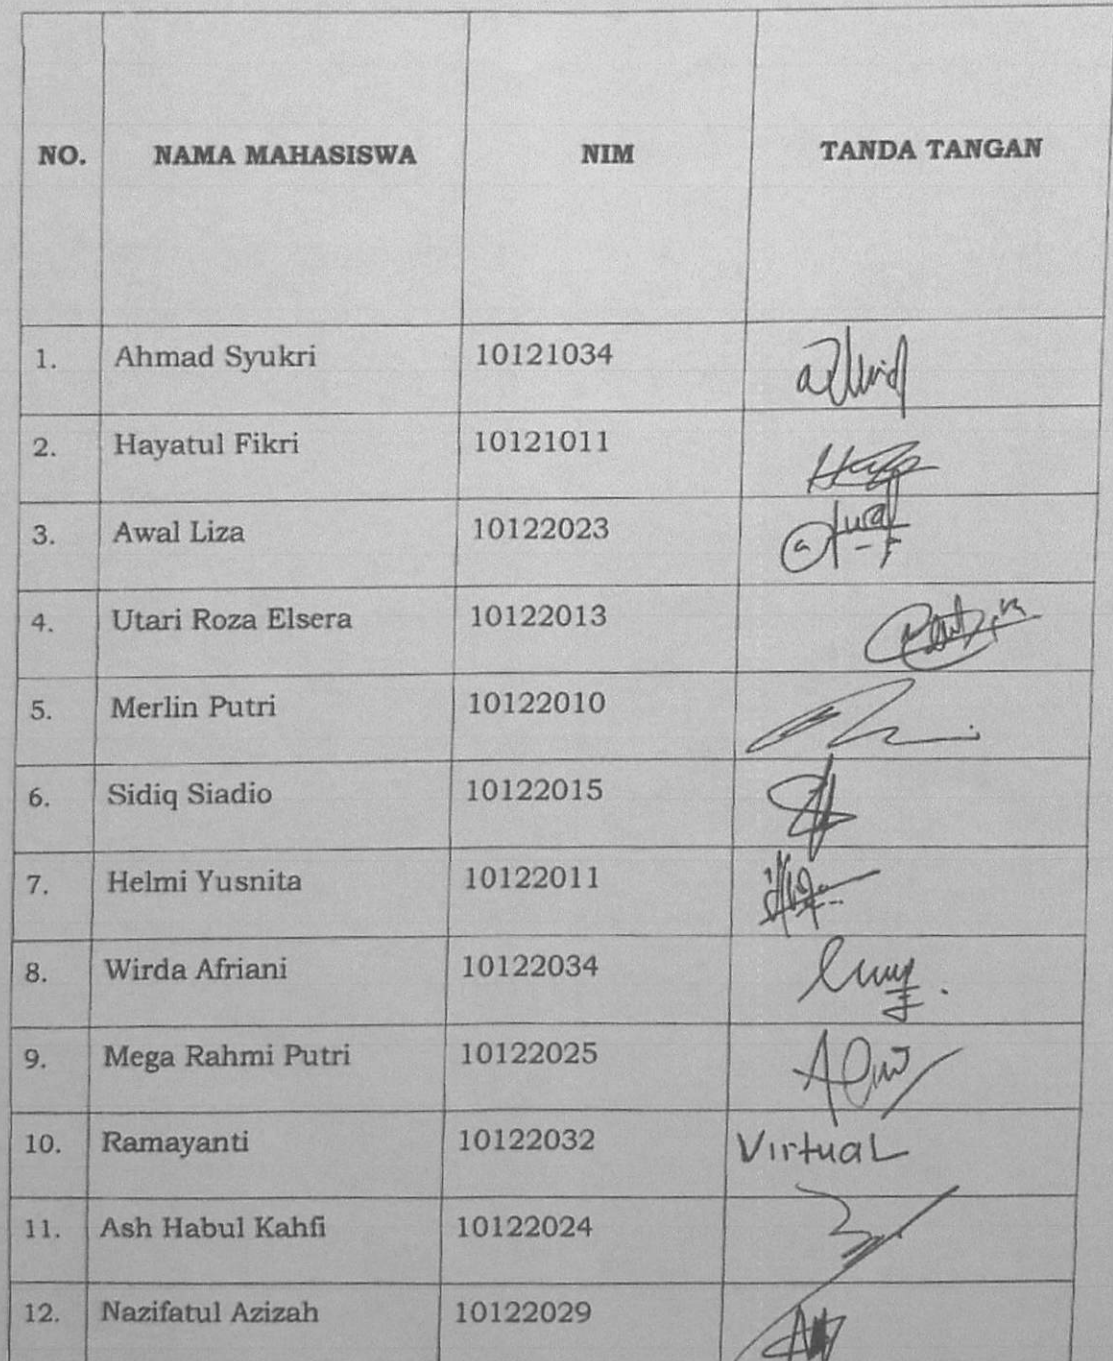 NO. NAMA MAHASISWA NIM TANDA TANGAN
1. Ahmad Syukri 10121034
2. Hayatul Fikri 10121011
3. Awal Liza 10122023
4. Utari Roza Elsera 10122013
5. Merlin Putri 10122010
6. Sidiq Siadio 10122015
7. Helmi Yusnita 10122011
8. Wirda Afriani 10122034
9. Mega Rahmi Putri 10122025
10. Ramayanti 10122032 Virtual
11. Ash Habul Kahfi 10122024
12. Nazifatul Azizah 10122029